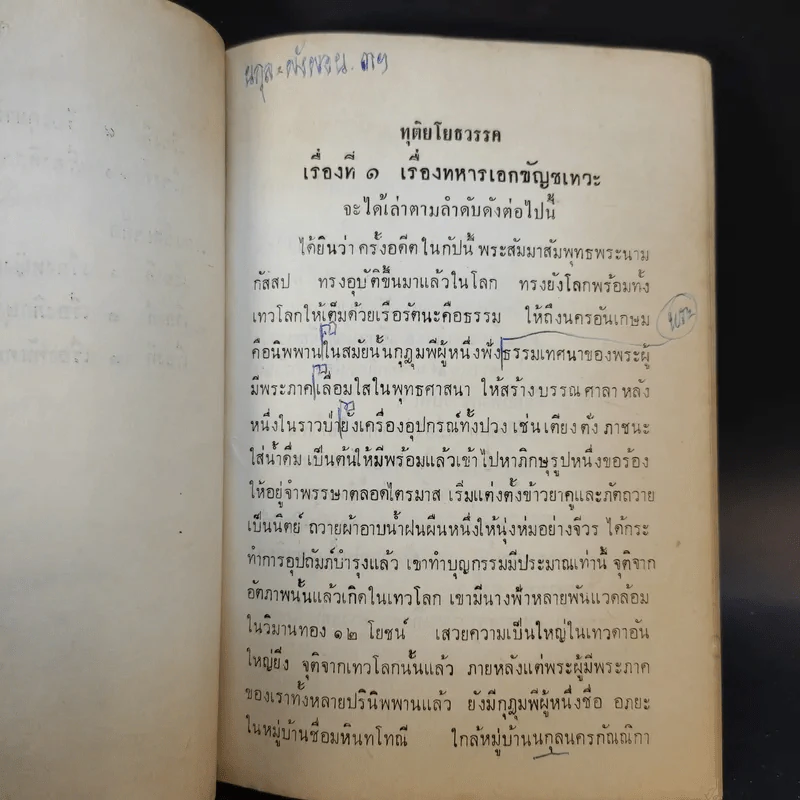 นกุล = พังพอน.
ทุติยโยธวรรค
เรื่องที่ ๑ เรื่องทหารเอกขัญชเทวะ
จะได้เล่าตามลำดับดังต่อไปนี้
ได้ยินว่า ครั้งอดีตในกัปนี้ พระสัมมาสัมพุทธพระนาม
กัสสป ทรงอุบัติขึ้นมาแล้วในโลก ทรงยังโลกพร้อมทั้ง
เทวโลกให้เต็มด้วยเรือรัตนะคือธรรม ให้ถึงนครอันเกษม
คือนิพพานในสมัยนั้นกุฎุมพีผู้หนึ่งฟังธรรมเทศนาของพระผู้
มีพระภาคเลื่อมใสในพุทธศาสนา ให้สร้างบรรณศาลาหลัง
หนึ่งในราวป่ายังเครื่องอุปกรณ์ทั้งปวง เช่น เตียง ตั่ง ภาชนะ
ใส่น้ำดื่ม เป็นต้นให้มีพร้อมแล้วเข้าไปหาภิกษุรูปหนึ่งขอร้อง
ให้อยู่จำพรรษาตลอดไตรมาส เริ่มแต่งตั้งข้าวยาคูและภัตถวาย
เป็นนิตย์ ถวายผ้าอาบน้ำฝนผืนหนึ่งให้นุ่งห่มอย่างจีวร ได้กระ
ทำการอุปถัมภ์บำรุงแล้ว เขาทำบุญกรรมมีประมาณเท่านี้ จุติจาก
อัตภาพนั้นแล้วเกิดในเทวโลก เขามีนางฟ้าหลายพันแวดล้อม
ในวิมานทอง ๑๒ โยชน์ เสวยความเป็นใหญ่ในเทวดาอัน
ใหญ่ยิ่ง จุติจากเทวโลกนั้นแล้ว ภายหลังแต่พระผู้มีพระภาค
ของเราทั้งหลายปรินิพพานแล้ว ยังมีกุฎุมพีผู้หนึ่งชื่อ อภยะ
ในหมู่บ้านชื่อมหินทโทณี ใกล้หมู่บ้านนกุลนครกัณณิกา